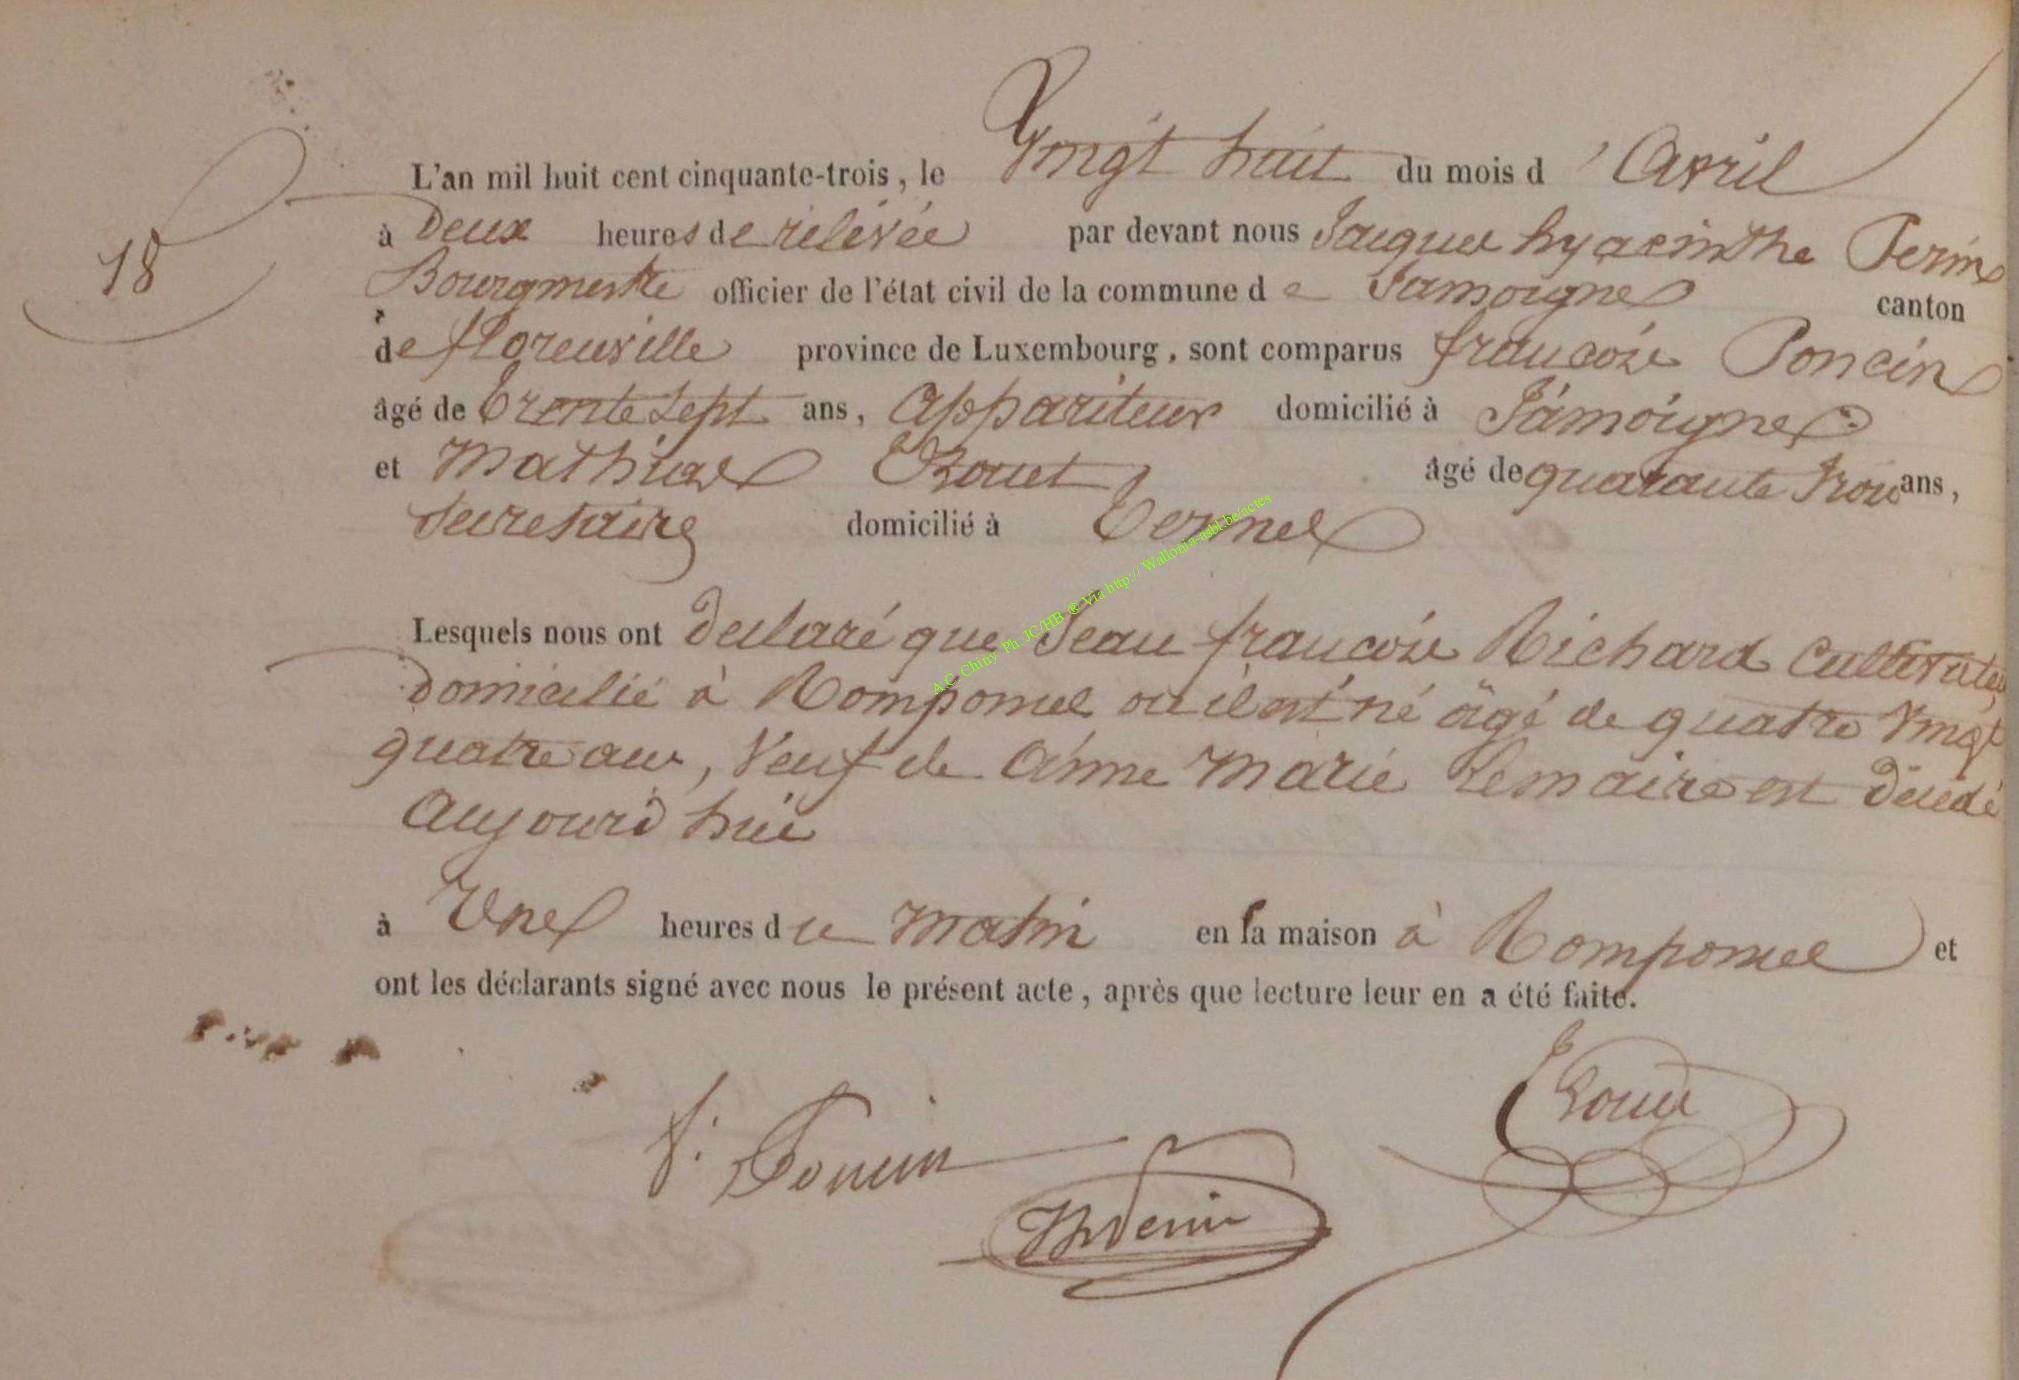 L'an mil huit cent cinquante-trois, le Vingt huit du mois d'Avril
18
à Deux heures de rélévée par devant nous Jacques hyacinthe Perin
Bourgmestre officier de l'état civil de la commune de Jamoigne canton
de florenville province de Luxembourg, sont comparus francois Poncin
âgé de trente sept ans, appariteur domicilié à Jamoigne
et Mathieu Rouet âgé de quarante trois ans,
Secretaire domicilié à Termel
Lesquels nous ont declaré que Jean francois Richard Cultivateur
domicilié à Romponcel où il est né âgé de quatre vingt
quatre ans, Veuf de anne Marie Lemaire est décédé
aujourd hui
à Une heures du Matin en sa maison à Romponcel et
ont les déclarants signé avec nous le présent acte, après que lecture leur en a été faite.
Rouet
f. Poncin
JhPerin
A.C. Chiny Ph JC/HB & Via http:// Wallonia-asbl.be/actes